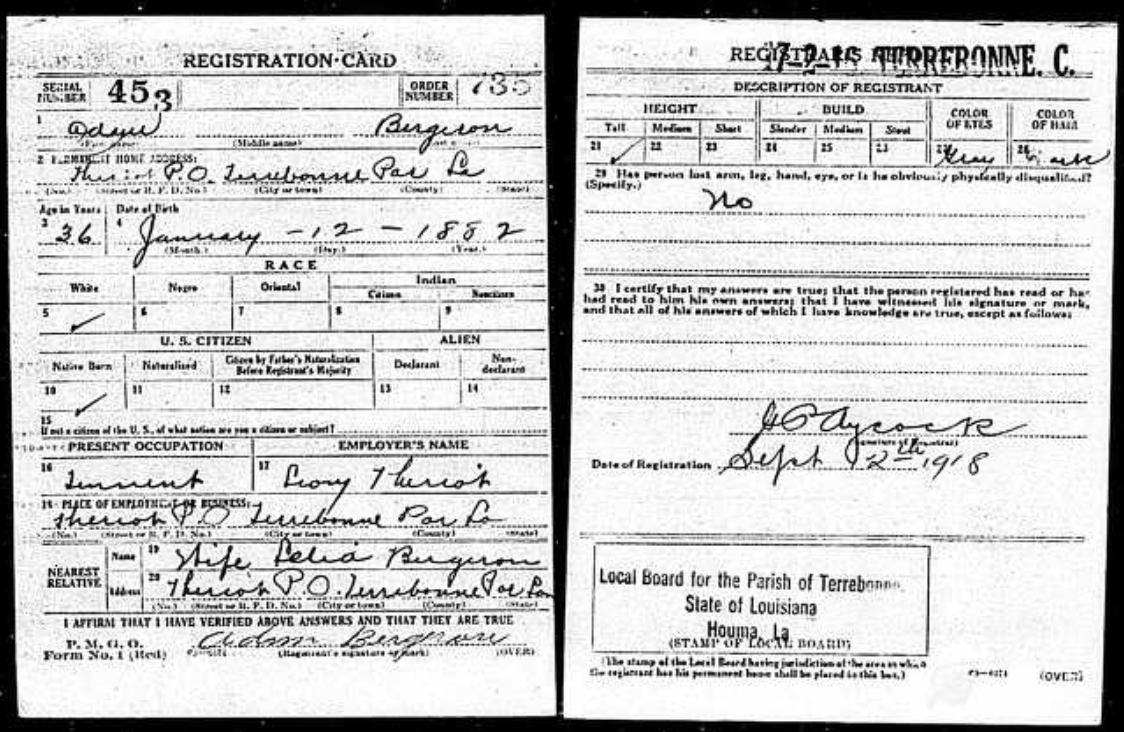 REGISTRATION CARD
SERIAL NUMBER 453 ORDER NUMBER 735
1 Bergeron
(First name) (Middle name) (Last name)
2 PERMANENT HOME ADDRESS:
Theriot P.O. Terrebonne Par La
(No.) (Street or R. F. D. No.) (City or town) (County) (State)
Age in Years Date of Birth
3 36 4 January - 12 - 1882
(Month.) (Day.) (Year.)
RACE
White Negro Oriental Indian
Citizen Noncitizen
5 ✓ 6 7 8 9
U. S. CITIZEN ALIEN
Native Born Naturalized Citizen by Father's Naturalization Before Registrant's Majority Declarant Non-declarant
10 ✓ 11 12 13 14
15
If not a citizen of the U. S., of what nation are you a citizen or subject?
PRESENT OCCUPATION EMPLOYER'S NAME
16 17 Theriot
18 PLACE OF EMPLOYMENT OR BUSINESS:
Theriot P.O Terrebonne Par La
(No.) (Street or R. F. D. No.) (City or town) (County) (State)
NEAREST RELATIVE
Name 19 Wife Bergeron
Address 20 Theriot P.O. Terrebonne Par La
(No.) (Street or R. F. D. No.) (City or town) (County) (State)
I AFFIRM THAT I HAVE VERIFIED ABOVE ANSWERS AND THAT THEY ARE TRUE
P. M. G. O.
Form No. 1 (Red) Adam Bergeron
(Registrant's signature or mark) (OVER)
REGISTRAR'S TERREBONNE. C.
DESCRIPTION OF REGISTRANT
HEIGHT BUILD COLOR OF EYES COLOR OF HAIR
Tall Medium Short Slender Medium Stout
21 ✓ 22 23 24 25 27 Gray 28 Dark
29 Has person lost arm, leg, hand, eye, or is he obviously physically disqualified?
(Specify.)
No
30 I certify that my answers are true; that the person registered has read or has
had read to him his own answers; that I have witnessed his signature or mark,
and that all of his answers of which I have knowledge are true, except as follows:
Aycock
(Signature of Registrar)
Date of Registration Sept 12th 1918
Local Board for the Parish of Terrebonne,
State of Louisiana
Houma, La
(STAMP OF LOCAL BOARD)
(The stamp of the Local Board having jurisdiction of the area in which
the registrant has his permanent home shall be placed in this box.) (OVER)